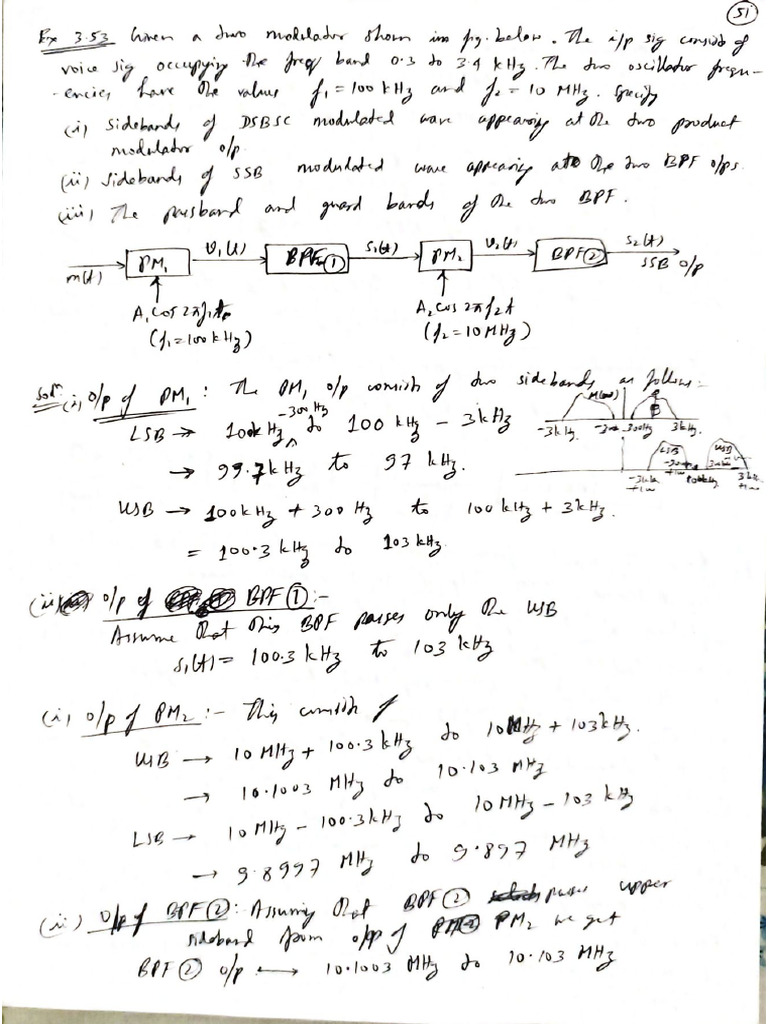 51
Ex 3.53 Given a two modulator shown in fig. below. The i/p sig consists of
voice sig occupying the freq band 0.3 to 3.4 kHz. The two oscillator frequ-
-encies have the values f1 = 100 kHz and f2 = 10 MHz. Specify
(i) Sidebands of DSBSC modulated wave appearing at the two product
modulator o/p.
(ii) Sidebands of SSB modulated wave appearing at the two BPF o/ps.
(iii) The passband and guard bands of the two BPF.
m(t) PM1 v1(t) BPF ① s1(t) PM2 v2(t) BPF ② s2(t)
SSB o/p
A1 cos 2πf1t A2 cos 2πf2t
(f1 = 100 kHz) (f2 = 10 MHz)
Soln (i) o/p of PM1 : The PM1 o/p consists of two sidebands as follows :-
LSB → 100kHz -300Hz to 100 kHz - 3kHz
-3kHz -300 300Hz 3kHz
→ 99.7kHz to 97 kHz.
LSB USB
100kHz
USB → 100kHz + 300 Hz to 100 kHz + 3kHz.
= 100.3 kHz to 103 kHz.
(ii) o/p of BPF ① :-
Assume that this BPF passes only the USB
s1(t) = 100.3 kHz to 103 kHz
(i) o/p of PM2 :- This consists of
USB → 10 MHz + 100.3 kHz to 10MHz + 103kHz.
→ 10.1003 MHz to 10.103 MHz
LSB → 10 MHz - 100.3kHz to 10 MHz - 103 kHz
→ 9.8997 MHz to 9.897 MHz
(ii) o/p of BPF ② : Assuming that BPF ② passes upper
sideband from o/p of PM2 we get
BPF ② o/p ⟷ 10.1003 MHz to 10.103 MHz